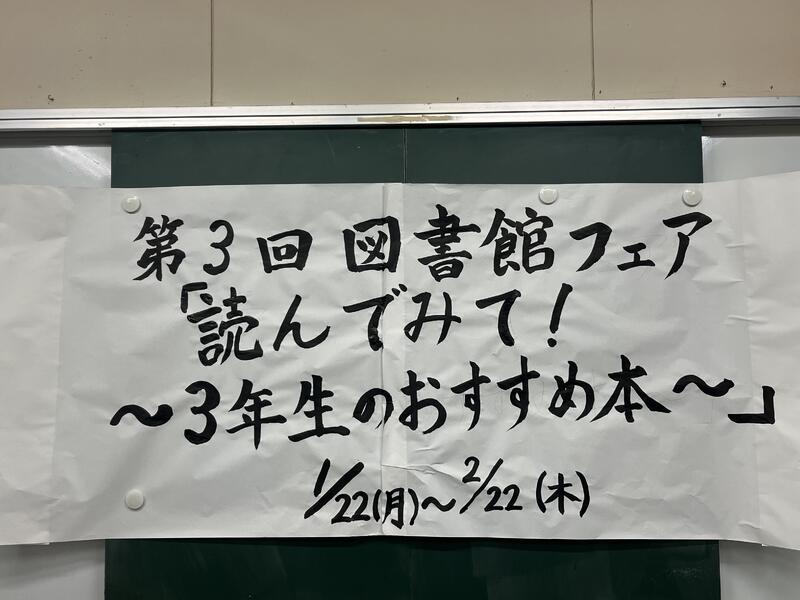 第3回 図書館フェア
「読んでみて!
～3年生のおすすめ本～」
1/22(月)～2/22(木)